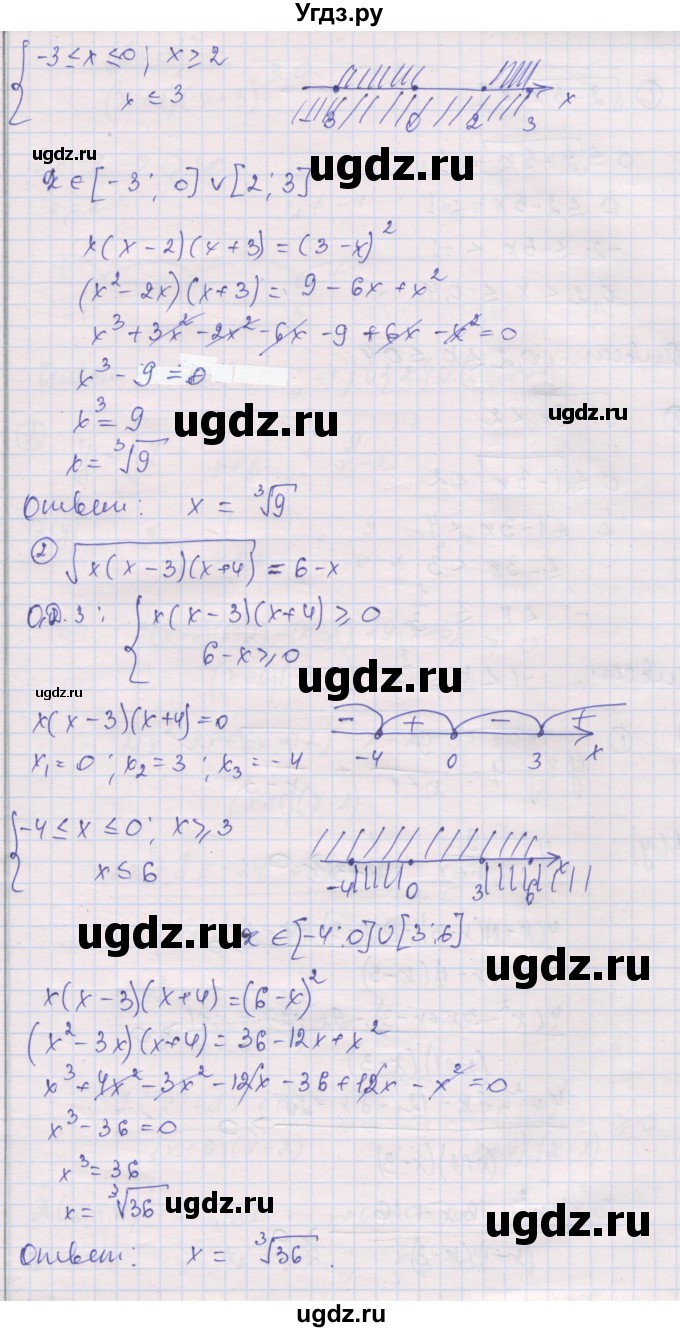 Угдз.ру
{ -3 ≤ x ≤ 0 ; x ≥ 2
x ≤ 3
-3 0 2 3 x
ugdz.ru ugdz.ru
x ∈ [-3 ; 0] ∪ [2 ; 3]
x(x-2)(x+3) = (3-x)²
(x²-2x)(x+3) = 9-6x+x²
x³+3x²-2x²-6x-9+6x-x²=0
x³-9=0
x³=9 ugdz.ru ugdz.ru
x=∛9
Ответ: x = ∛9
② √x(x-3)(x+4) = 6-x
О.Д.З: { x(x-3)(x+4) ≥ 0
6-x ≥ 0
ugdz.ru ugdz.ru
x(x-3)(x+4)=0 - + - +
x₁=0 ; x₂=3 ; x₃=-4 -4 0 3 x
{ -4 ≤ x ≤ 0; x ≥ 3
x ≤ 6 -4 0 3 6 x
ugdz.ru x ∈ [-4;0] ∪ [3;6]
ugdz.ru
x(x-3)(x+4)=(6-x)²
(x²-3x)(x+4)=36-12x+x²
x³+4x²-3x²-12x-36+12x-x²=0
x³-36=0
x³=36
x=∛36 ugdz.ru ugdz.ru
Ответ: x = ∛36.
ugdz.ru